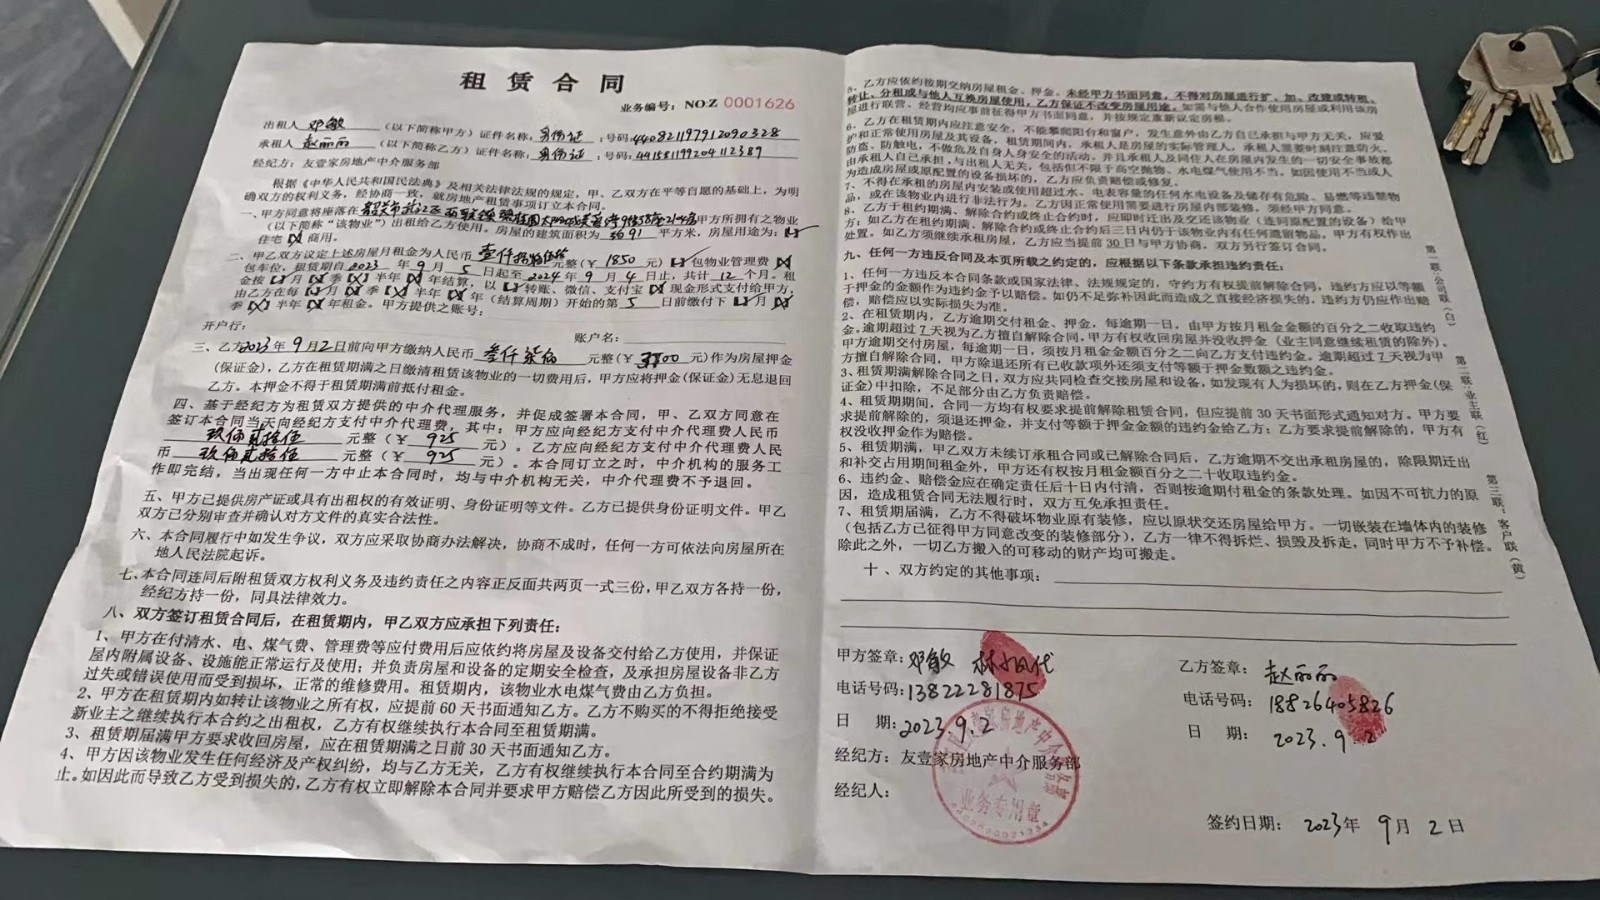 租赁合同
业务编号：NO:Z 0001626
出租人 邓敏 （以下简称甲方）证件名称：身份证；号码：440821197912090328
承租人 赵丽丽 （以下简称乙方）证件名称：身份证；号码：
经纪方：友壹家房地产中介服务部
根据《中华人民共和国民法典》及相关法律法规的规定，甲、乙双方在平等自愿的基础上，为明
确双方的权利义务，经协商一致，就房地产租赁事项订立本合同。
一、甲方同意将座落在 韶关市 甲方所拥有之物业
（以下简称“该物业”）出租给乙方使用。房屋的建筑面积为 平方米，房屋用途为：
住宅 商用。
二、甲乙双方议定上述房屋月租金为人民币 元整（￥1850 元） 包物业管理费
包车位，租赁期自2023年9月5日起至2024年9月4日止，共计12个月。租
金按 月 季 半年 年结算，以 转账、微信、支付宝 现金形式支付给甲方；
由乙方在每 月 季 半年 年（结算周期）开始的第5日前缴付下 月
季 半年 年租金。甲方提供之账号：
开户行： 账户名：
三、乙方2023年9月2日前向甲方缴纳人民币 叁仟柒佰 元整（￥3700元）作为房屋押金
（保证金），乙方在租赁期满之日缴清租赁该物业的一切费用后，甲方应将押金（保证金）无息退回
乙方。本押金不得于租赁期满前抵付租金。
四、基于经纪方为租赁双方提供的中介代理服务，并促成签署本合同，甲、乙双方同意在
签订本合同当天向经纪方支付中介代理费，其中：甲方应向经纪方支付中介代理费人民币
玖佰贰拾伍 元整（￥925 元）。乙方应向经纪方支付中介代理费人民
币 玖佰贰拾伍 元整（￥925 元）。本合同订立之时，中介机构的服务工
作即完结，当出现任何一方中止本合同时，均与中介机构无关，中介代理费不予退回。
五、甲方已提供房产证或具有出租权的有效证明、身份证明等文件。乙方已提供身份证明文件。甲乙
双方已分别审查并确认对方文件的真实合法性。
六、本合同履行中如发生争议，双方应采取协商办法解决，协商不成时，任何一方可依法向房屋所在
地人民法院起诉。
七、本合同连同后附租赁双方权利义务及违约责任之内容正反面共两页一式三份，甲乙双方各持一份，
经纪方持一份，同具法律效力。
八、双方签订租赁合同后，在租赁期内，甲乙双方应承担下列责任：
1、甲方在付清水、电、煤气费、管理费等应付费用后应依约将房屋及设备交付给乙方使用，并保证
屋内附属设备、设施能正常运行及使用；并负责房屋和设备的定期安全检查，及承担房屋设备非乙方
过失或错误使用而受到损坏，正常的维修费用。租赁期内，该物业水电煤气费由乙方负担。
2、甲方在租赁期内如转让该物业之所有权，应提前60天书面通知乙方。乙方不购买的不得拒绝接受
新业主之继续执行本合约之出租权，乙方有权继续执行本合同至租赁期满。
3、租赁期届满甲方要求收回房屋，应在租赁期满之日前30天书面通知乙方。
4、甲方因该物业发生任何经济及产权纠纷，均与乙方无关，乙方有权继续执行本合同至合约期满为
止。如因此而导致乙方受到损失的，乙方有权立即解除本合同并要求甲方赔偿乙方因此所受到的损失。
5、乙方应依约按期交纳房屋租金、押金。未经甲方书面同意，不得对房屋进行扩、加、改建或转租、
转让、分租或与他人互换房屋使用，乙方保证不改变房屋用途。如需与他人合作使用房屋或利用该房
屋进行联营、经营均应事前征得甲方书面同意，并按规定重新议定房租。
6、乙方在租赁期内应注意安全，不能攀爬阳台和窗户，发生意外由乙方自己承担与甲方无关，应爱
护和正常使用房屋及其设备，租赁期间内，承租人是房屋的实际管理人，承租人需要时刻注意防火、
防盗、防触电，不做危及自身人身安全的活动。并且承租人及同住人在房屋内发生的一切安全事故都
由承租人自己承担，与出租人无关，包括但不限于高空抛物、水电煤气使用不当。如因使用不当或人
为造成房屋或原配置的设备损坏的，乙方应负责赔偿或修复。
7、不得在承租的房屋内安装或使用超过水、电表容量的任何水电设备及储存有危险、易燃等违禁物
品，或在该物业内进行非法行为。乙方因正常使用需要进行房屋内部装修，须经甲方同意。
8、乙方于租约期满、解除合约或终止合约时，应即时迁出及交还该物业（连同原配置的设备）给甲
方；如乙方在租约期满、解除合约或终止合约后三日内仍于该物业内有任何遗留物品，甲方有权作出
处置。如乙方须继续承租房屋，乙方应当提前30日与甲方协商，双方另行签订合同。
九、任何一方违反合同及本页所载之约定的，应根据以下条款承担违约责任：
1、任何一方违反本合同条款或国家法律、法规规定的，守约方有权提前解除合同，违约方应以等额
于押金的金额作为违约金予以赔偿。如仍不足弥补因此而造成之直接经济损失的，违约方仍应作出赔
偿，赔偿应以实际损失为准。
2、在租赁期内，乙方逾期交付租金、押金，每逾期一日，由甲方按月租金金额的百分之二收取违约
金。逾期超过7天视为乙方擅自解除合同，甲方有权收回房屋并没收押金（业主同意继续租赁的除外）。
甲方逾期交付房屋，每逾期一日，须按月租金金额百分之二向乙方支付违约金。逾期超过7天视为甲
方擅自解除合同，甲方除退还所有已收款项外还须支付等额于押金数额之违约金。
3、租赁期满解除合同之日，双方应共同检查交接房屋和设备，如发现有人为损坏的，则在乙方押金（保
证金）中扣除，不足部分由乙方负责赔偿。
4、租赁期期间，合同一方均有权要求提前解除租赁合同，但应提前30天书面形式通知对方。甲方要
求提前解除的，须退还押金，并支付等额于押金金额的违约金给乙方；乙方要求提前解除的，甲方有
权没收押金作为赔偿。
5、租赁期满，甲乙双方未续订承租合同或已解除合同后，乙方逾期不交出承租房屋的，除限期迁出
和补交占用期间租金外，甲方还有权按月租金额百分之二十收取违约金。
6、违约金、赔偿金应在确定责任后十日内付清，否则按逾期付租金的条款处理。如因不可抗力的原
因，造成租赁合同无法履行时，双方互免承担责任。
7、租赁期届满，乙方不得破坏物业原有装修，应以原状交还房屋给甲方。一切嵌装在墙体内的装修
（包括乙方已征得甲方同意改变的装修部分），乙方一律不得拆烂、损毁及拆走，同时甲方不予补偿。
除此之外，一切乙方搬入的可移动的财产均可搬走。
十、双方约定的其他事项：
甲方签章：邓敏
电话号码：13822281875
日 期：2023.9.2
经纪方：友壹家房地产中介服务部
经纪人：
业务专用章
乙方签章：赵丽丽
电话号码：18826405826
日 期：2023.9.2
签约日期：2023年9月2日
第一联：公司联（白）
第二联：业主联（红）
第三联：客户联（黄）